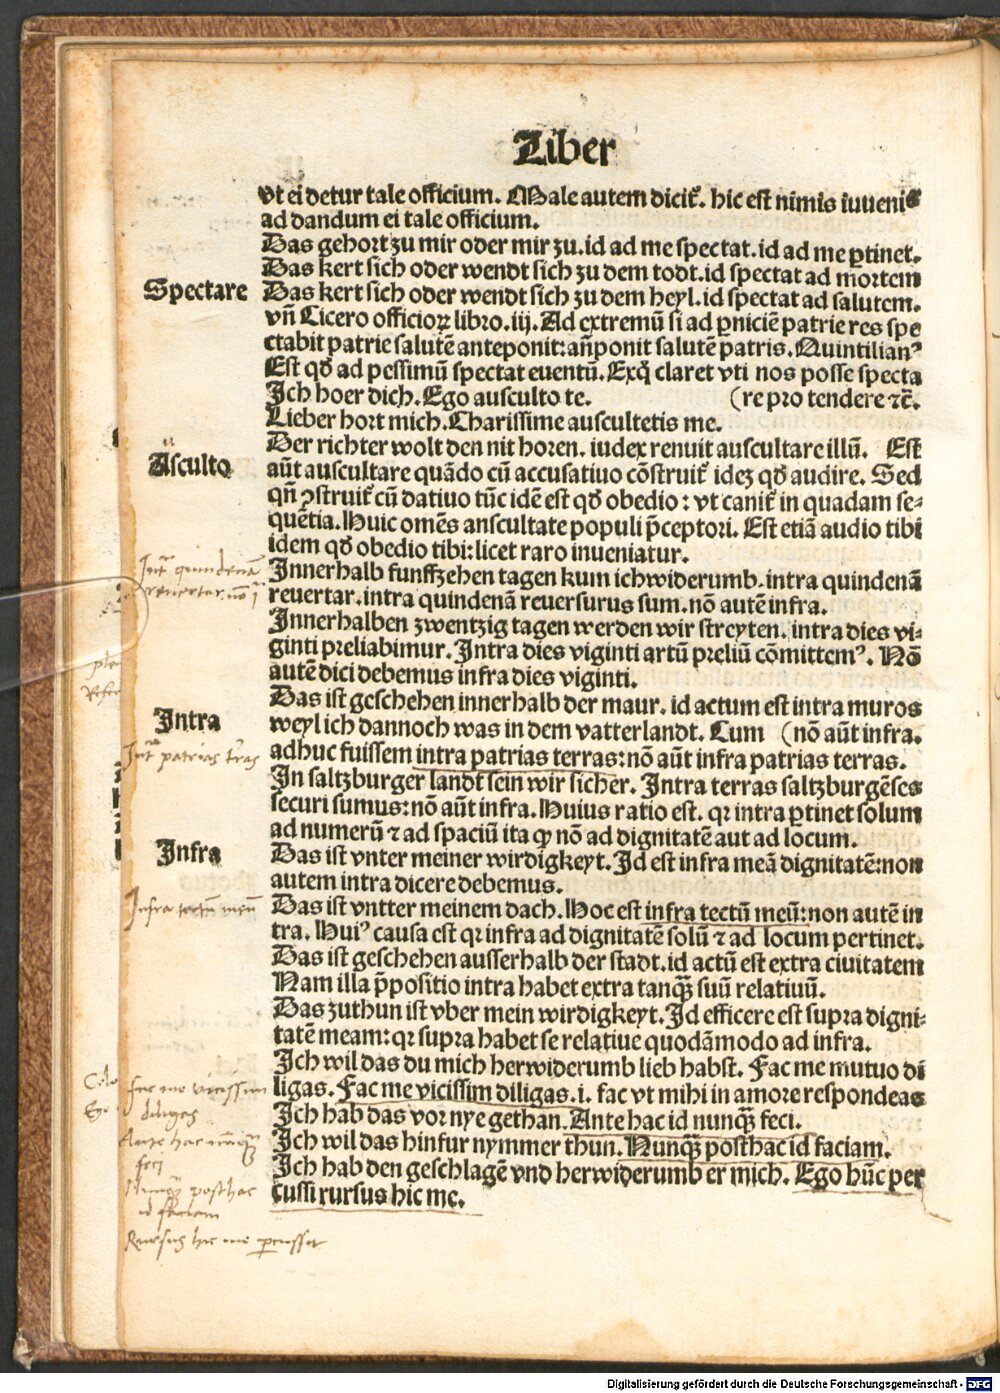 Liber
vt ei detur tale officium. Male autem dicit᷑. hic est nimis iuuenis
ad dandum ei tale officium.
Das gehort zu mir oder mir zu. id ad me spectat. id ad me ꝑtinet.
Das kert sich oder wendt sich zu dem todt. id spectat ad mortem
Spectare
Das kert sich oder wendt sich zu dem heyl. id spectat ad salutem.
vñ Cicero officioꝝ libro. iij. Ad extremū si ad ꝑniciē patrie res spe
ctabit patrie salutē anteponit: añponit salutē patris. Quintilianꝰ
Est qđ ad pessimū spectat euentū. Exq̄ claret vti nos posse specta
Ich hoer dich. Ego ausculto te. (re pro tendere ⁊c̄.
Lieber hort mich. Charissime auscultetis me.
Der richter wolt den nit horen. iudex renuit auscultare illū. Est
Asculto
aūt auscultare quādo cū accusatiuo cōstruit᷑ idez qđ audire. Sed
qñ ꝯstruit᷑ cū datiuo tūc idē est qđ obedio: vt canit᷑ in quadam se-
quētia. Huic omēs anscultate populi p̄ceptori. Est etiā audio tibi
idem qđ obedio tibi: licet raro inueniatur.
Innerhalb funffzehen tagen kum ich widerumb. intra quindenā
reuertar. intra quindenā reuersurus sum. nō autē infra.
Innerhalben zwentzig tagen werden wir streyten. intra dies vi-
ginti preliabimur. Intra dies viginti artū preliū cōmittemꝰ. Nō
autē dici debemus infra dies viginti.
Das ist geschehen innerhalb der maur. id actum est intra muros
Intra
weyl ich dannoch was in dem vatterlandt. Cum (nō aūt infra.
Int᷑ patrias t᷑ras
adhuc fuissem intra patrias terras: nō aūt infra patrias terras.
In saltzburger landt sein wir sicher. Intra terras saltzburgēses
securi sumus: nō aūt infra. Huius ratio est. qꝛ intra ꝑtinet solum
ad numerū ⁊ ad spaciū ita ꝙ nō ad dignitatē aut ad locum.
Infra
Das ist vnter meiner wirdigkeyt. Id est infra meā dignitatē: non
autem intra dicere debemus.
Infra tectū meū
Das ist vntter meinem dach. Hoc est infra tectū meū: non autē in
tra. Huiꝰ causa est qꝛ infra ad dignitatē solū ⁊ ad locum pertinet.
Das ist geschehen ausserhalb der stadt. id actū est extra ciuitatem
Nam illa p̄positio intra habet extra tanq̄ȝ suū relatiuū.
Das zuthun ist vber mein wirdigkeyt. Id efficere est supra digni-
tatē meam: qꝛ supra habet se relatiue quodāmodo ad infra.
Ich wil das du mich herwiderumb lieb habst. Fac me mutuo di
fac me vicissim
ligas. Fac me vicissim diligas. i. fac vt mihi in amore respondeas
diligas
Ich hab das vor nye gethan. Ante hac id nunq̄ȝ feci.
Ante hac nunq̄ȝ
Ich wil das hinfur nymmer thun. Nunq̄ȝ posthac id faciam.
feci
Ich hab den geschlagē vnd herwiderumb er mich. Ego hūc per
Nunq̄ȝ posthac
cussi rursus hic me.
id faciam
Rursus hic me ꝑcusset
Digitalisierung gefördert durch die Deutsche Forschungsgemeinschaft - DFG